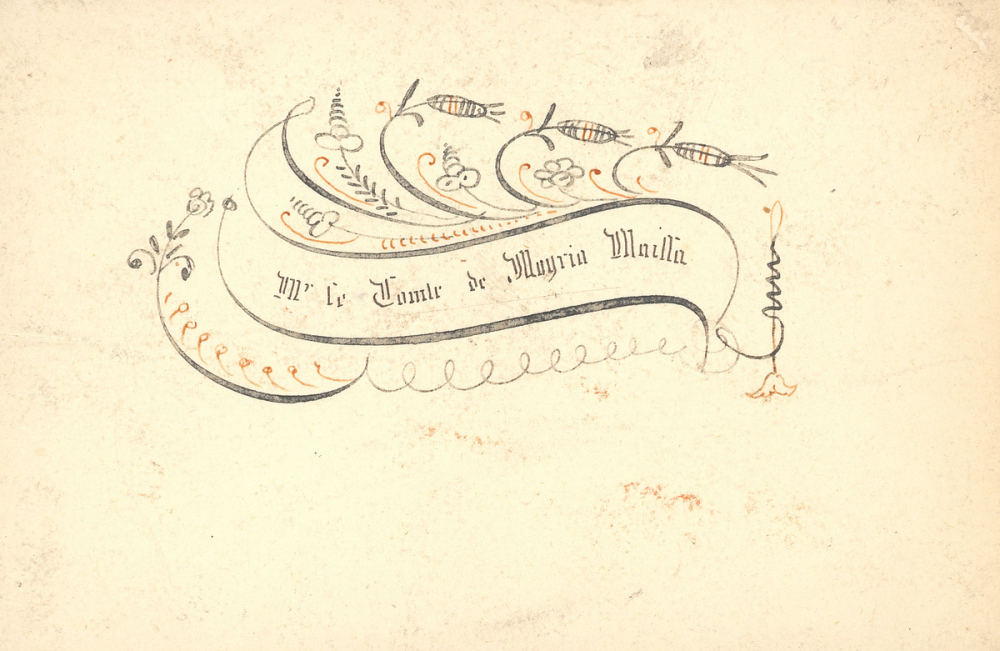 Mr le Comte de Moyria Mailla